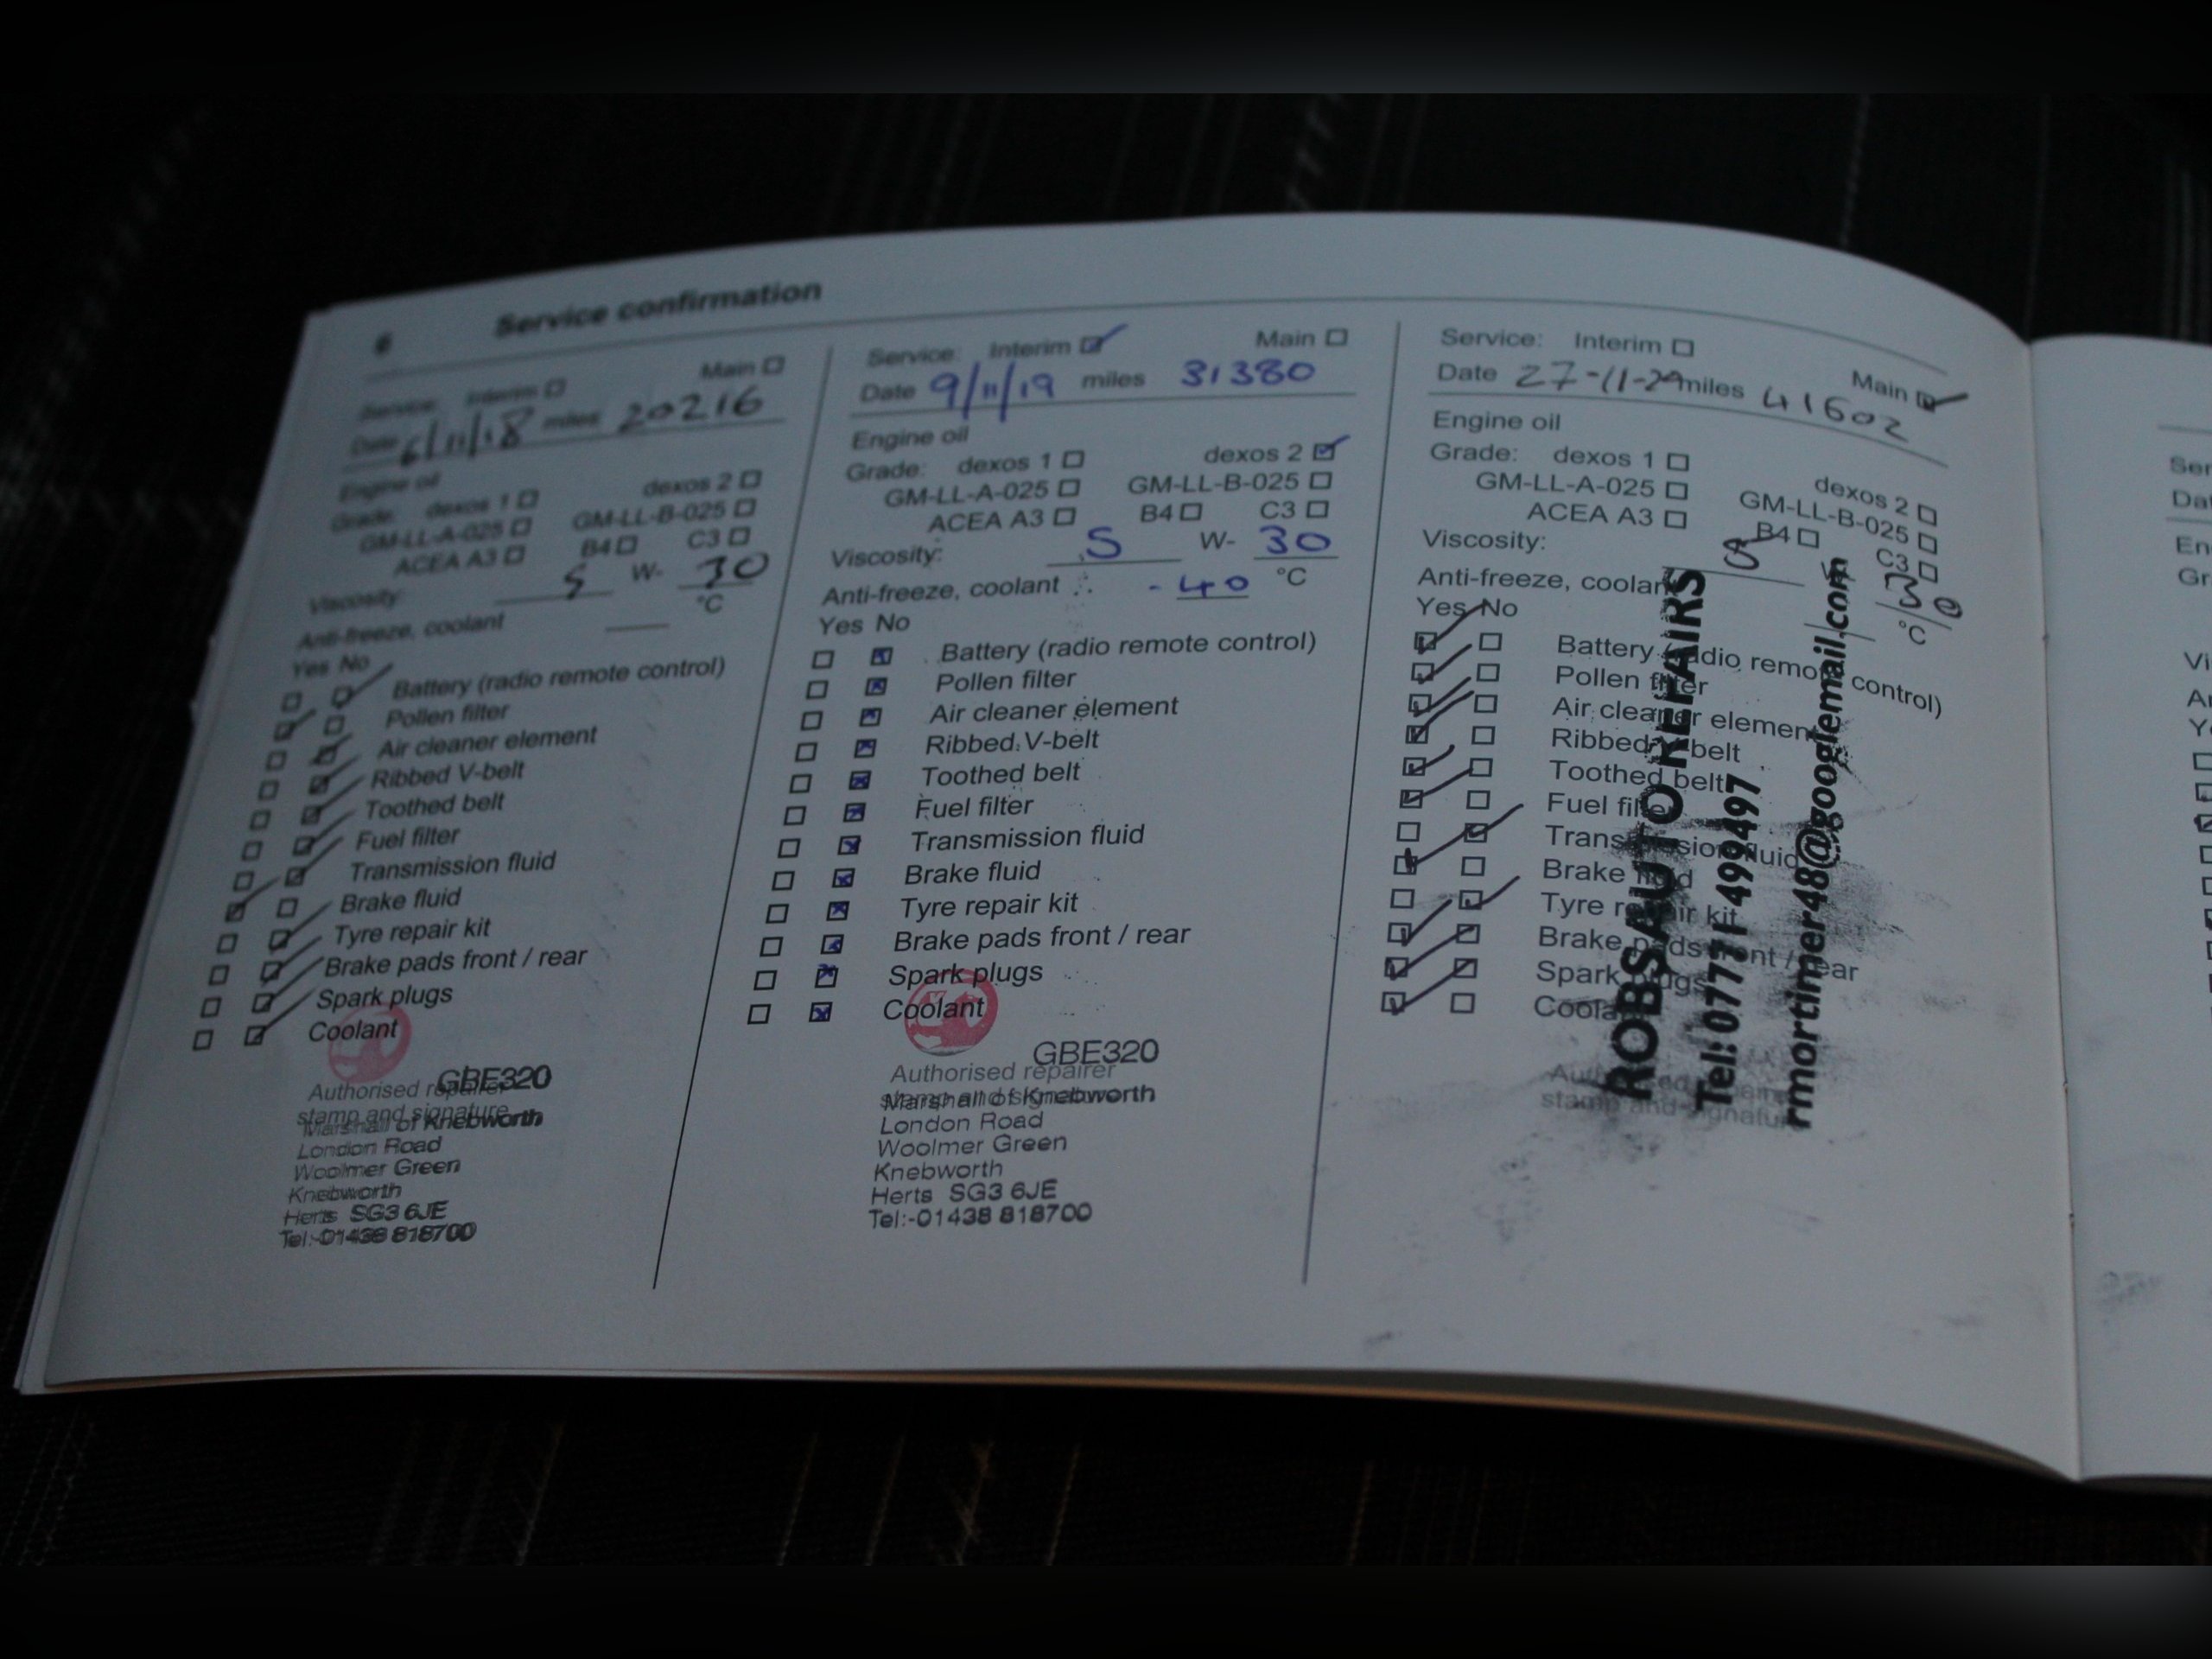 6 Service confirmation
Service: Interim Main
Date 6/11/18 miles 20216
Engine oil
Grade: dexos 1 dexos 2
GM-LL-A-025 GM-LL-B-025
ACEA A3 B4 C3
Viscosity: 5 W- 30
Anti-freeze, coolant °C
Yes No
Battery (radio remote control)
Pollen filter
Air cleaner element
Ribbed V-belt
Toothed belt
Fuel filter
Transmission fluid
Brake fluid
Tyre repair kit
Brake pads front / rear
Spark plugs
Coolant
GBE320
Authorised repairer
stamp and signature
Marshall of Knebworth
London Road
Woolmer Green
Knebworth
Herts SG3 6JE
Tel:-01438 818700
Service: Interim Main
Date 9/11/19 miles 31380
Engine oil
Grade: dexos 1 dexos 2
GM-LL-A-025 GM-LL-B-025
ACEA A3 B4 C3
Viscosity: 5 W- 30
Anti-freeze, coolant -40 °C
Yes No
Battery (radio remote control)
Pollen filter
Air cleaner element
Ribbed V-belt
Toothed belt
Fuel filter
Transmission fluid
Brake fluid
Tyre repair kit
Brake pads front / rear
Spark plugs
Coolant
GBE320
Authorised repairer
stamp and signature
Marshall of Knebworth
London Road
Woolmer Green
Knebworth
Herts SG3 6JE
Tel:-01438 818700
Service: Interim Main
Date miles 41602
Engine oil
Grade: dexos 1 dexos 2
GM-LL-A-025 GM-LL-B-025
ACEA A3 B4 C3
Viscosity: 5 W- 30
Anti-freeze, coolant °C
Yes No
Battery (radio remote control)
Pollen filter
Air cleaner element
Ribbed V-belt
Toothed belt
Fuel filter
Transmission fluid
Brake fluid
Tyre repair kit
Brake pads front / rear
Spark plugs
Coolant
Authorised repairer
stamp and signature
ROBSAUTO REPAIRS
Tel: 07771 499497
rmortimer48@googlemail.com